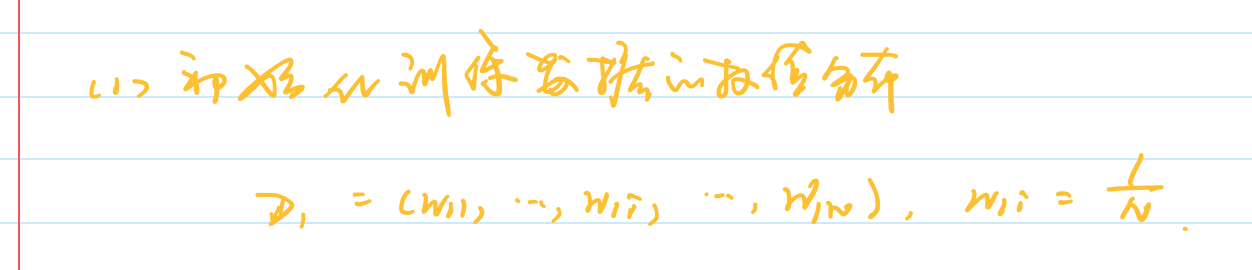 (1) 初始化训练数据的权值分布
D₁ = (w₁₁, ..., w₁ᵢ, ..., w₁ₙ), w₁ᵢ = 1/N.